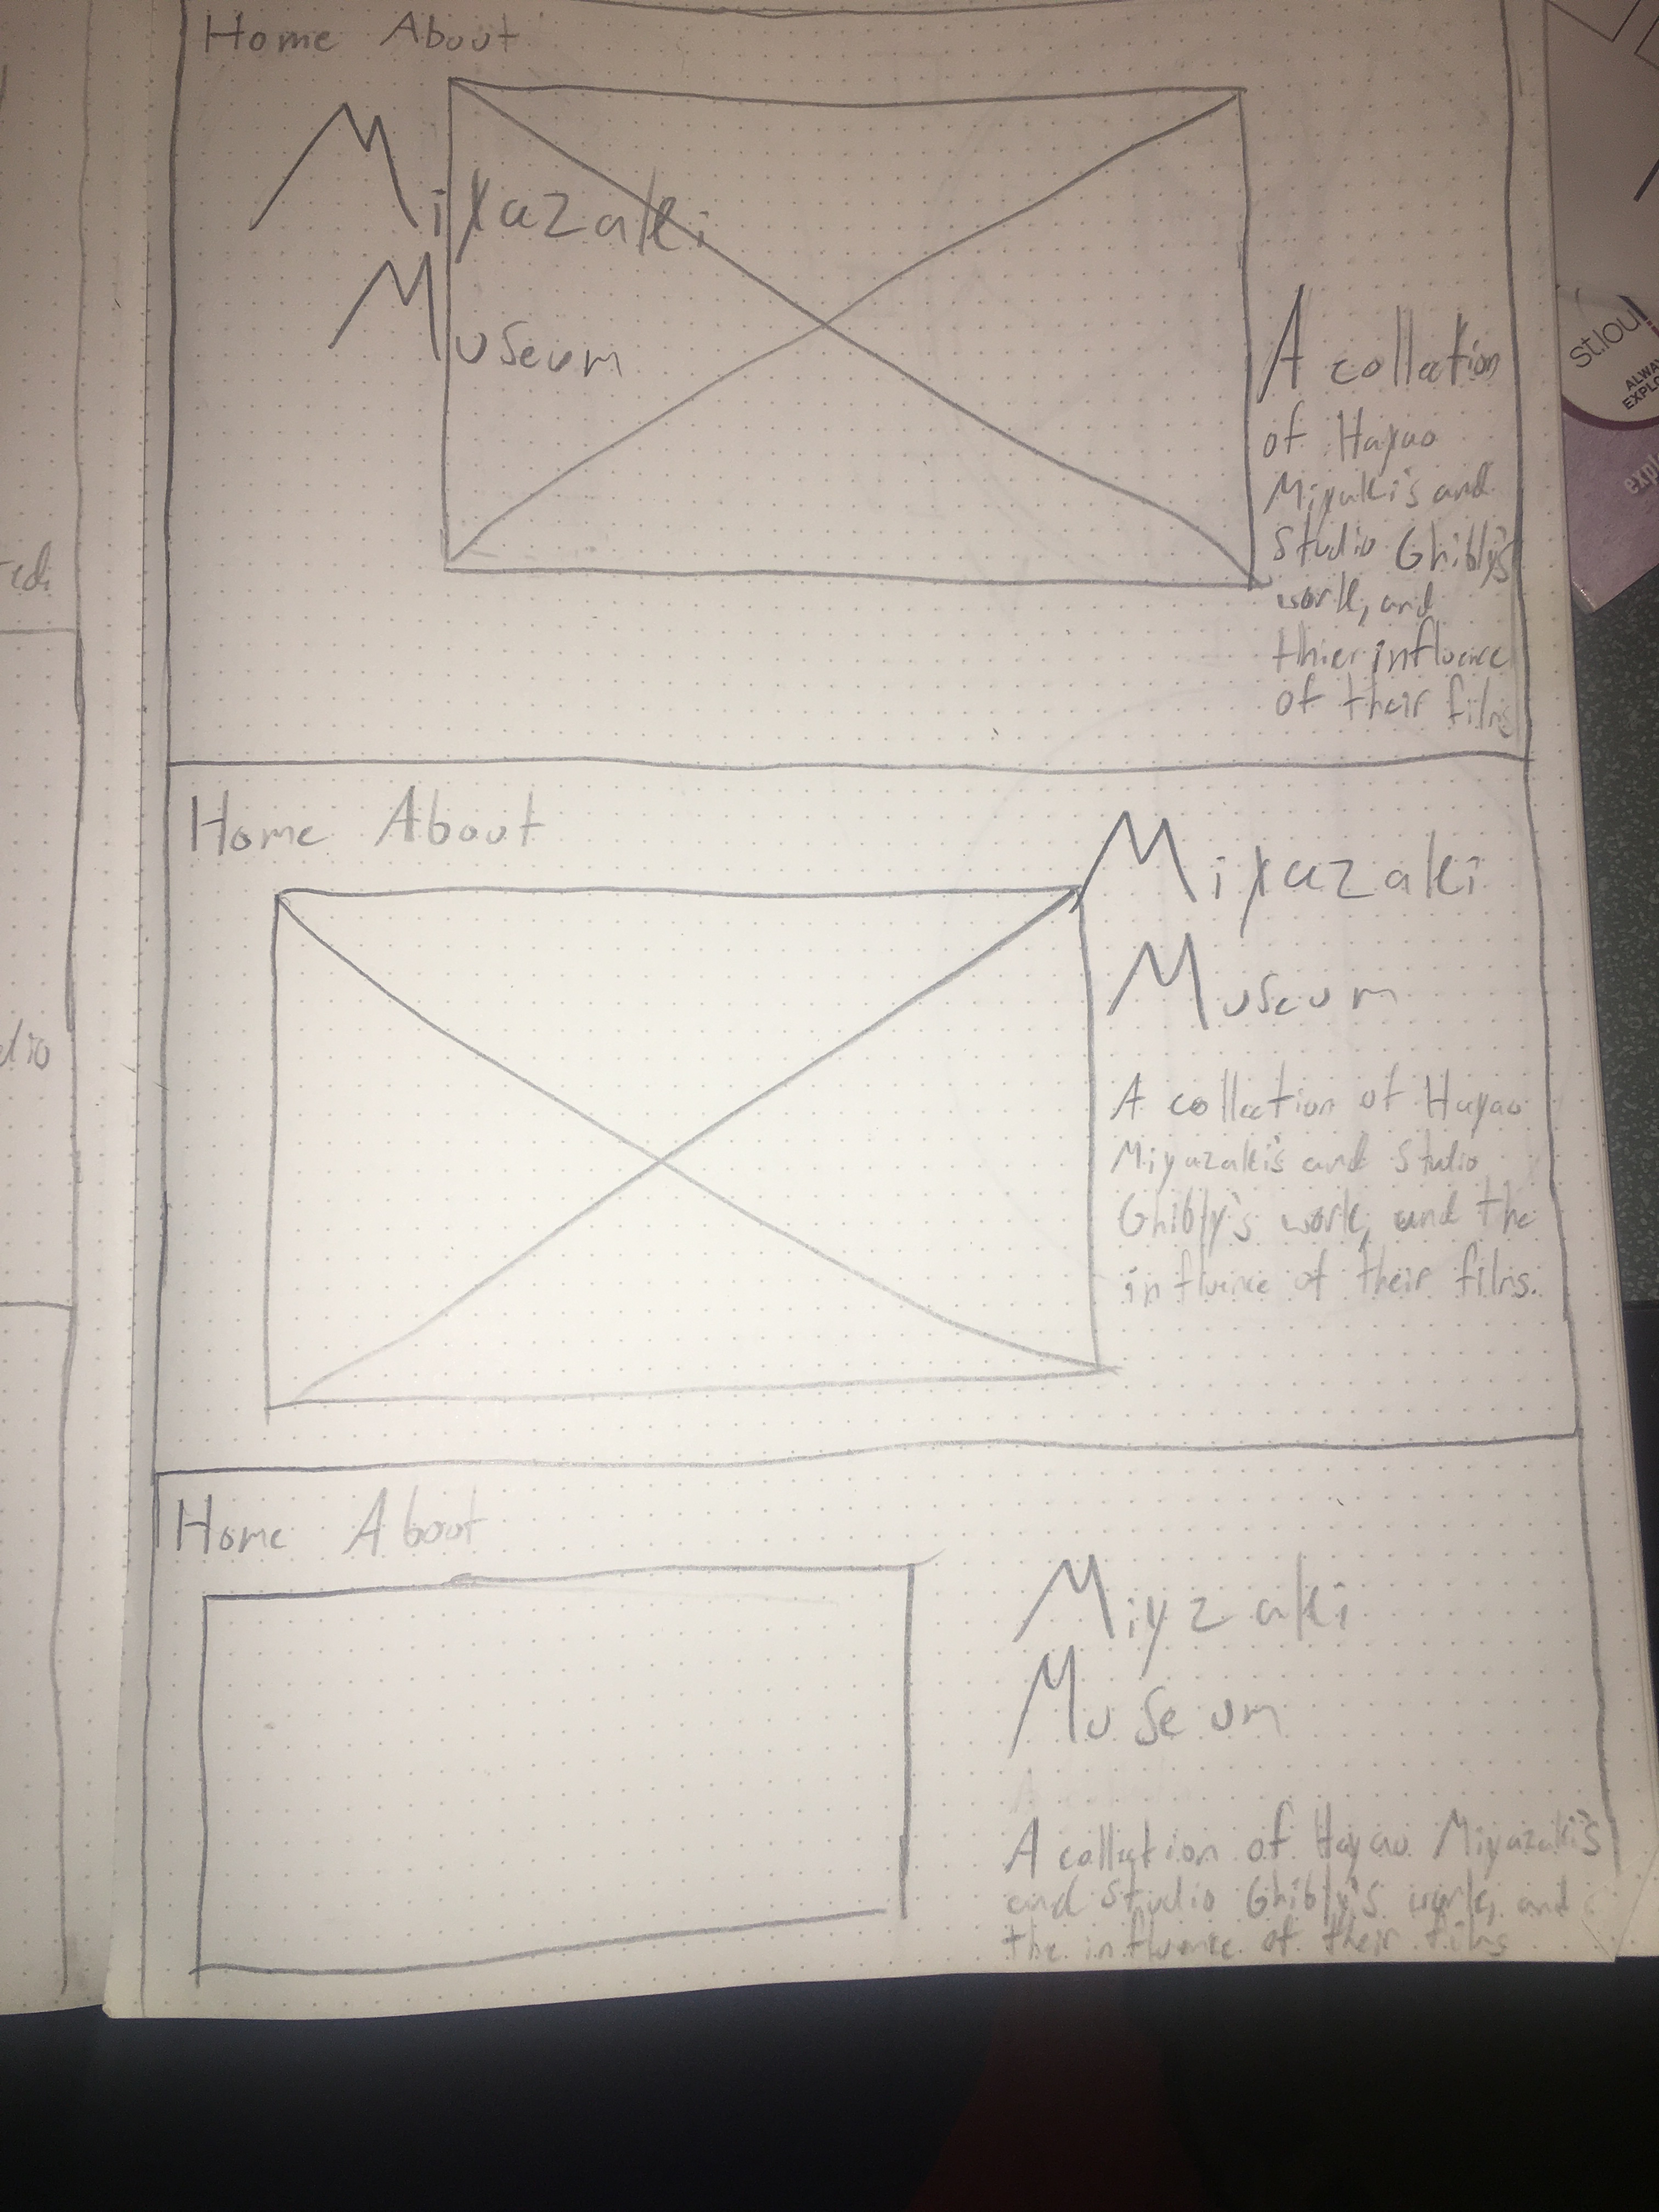 Home About
Miyazaki
Museum
A collection
of Hayao
Miyaki's and
Studio Ghibly's
work, and
thier influence
of their films
Home About
Miyazaki
Museum
A collection of Hayao
Miyazaki's and Studio
Ghibly's work, and the
influence of their films.
Home About
Miyzaki
Museum
A collection of Hayao Miyazaki's
and Studio Ghibly's work, and
the influence of their films
dio
st.lou
ALWA
EXPLO
expl